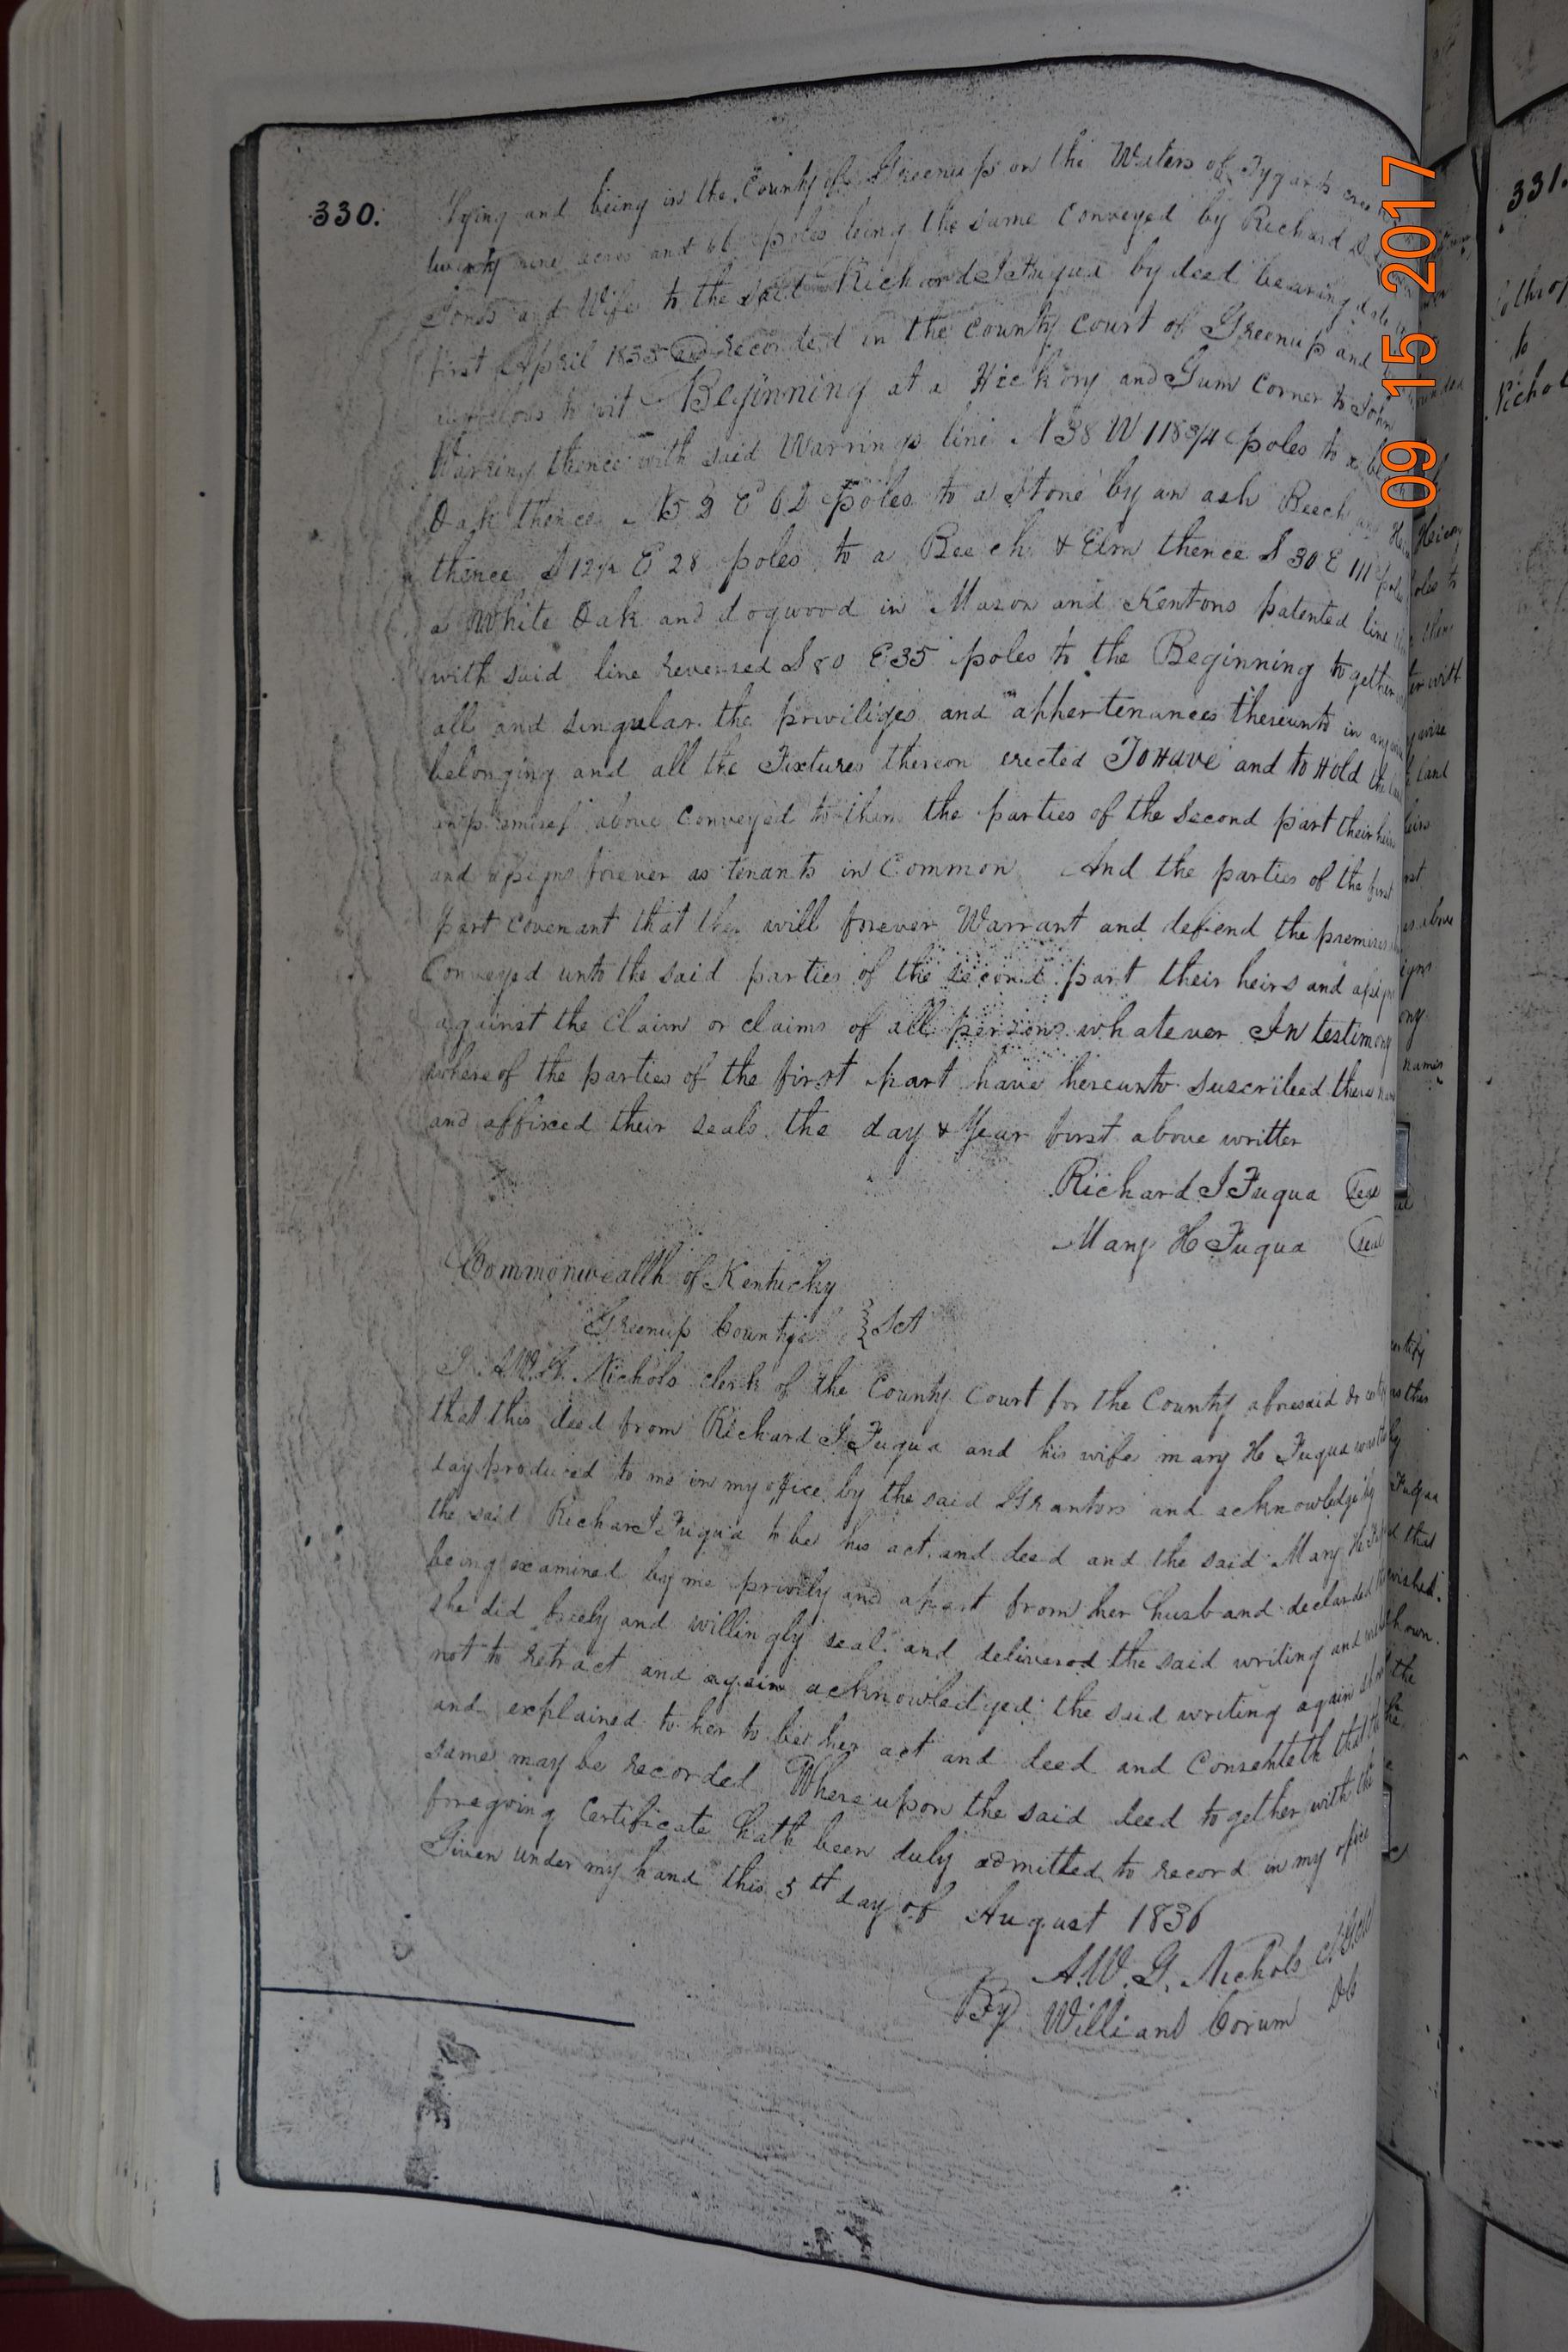 330.
lying and being in the County of Greenup on the Waters of Tygarts
twenty nine acres and 66 poles being the same Conveyed by Richard
Jones and Wife to the said Richard I Fuqua by deed bearing date
first April 1833 and recorded in the county court of Greenup and
to wit Beginning at a Hickory and Gum Corner to John
Warring thence with said Warrings line N 38 W 118 3/4 poles to a
Oak thence N 52 E 62 poles to a Stone by an ash Beech and
thence S 12 1/2 E 28 poles to a Beech & Elm thence S 30 E 111 poles
a White Oak and dogwood in Mason and Kentons patented line
with said line reversed S 80 E 35 poles to the Beginning together
all and singular the priviliges and appertenances thereunto in any
belonging and all the Fixtures thereon erected To Have and to Hold the
premises above Conveyed to them the parties of the second part their heirs
and assigns forever as tenants in Common And the parties of the first
part covenant that they will forever Warrant and defend the premises
Conveyed unto the said parties of the second part their heirs and assigns
against the Claim or claims of all persons whatever In testimony
whereof the parties of the first part have hereunto suscribed there
and affixed their seals the day & Year first above writter
Richard I Fuqua seal
Mary H Fuqua seal
Commonwealth of Kentucky
Greenup County Sct
I A.W.G. Nichols clerk of the County Court for the County aforesaid do
that this deed from Richard I Fuqua and his wife mary H Fuqua was
day produced to me in my office by the said Grantors and acknowledged by
the said Richard I Fuqua to be his act and deed and the said Mary H
being examined by me privily and apart from her husband declared
she did freely and willingly seal and delivered the said writing and
not to retract and again acknowledged the said writing again
and explained to her to be her act and deed and Consenteth that the
same may be recorded Whereupon the said deed together with the
foregoing Certificate hath been duly admitted to record in my office
Given under my hand this 5th day of August 1836
A.W.G. Nichols
By William Corum
09 15 2017
331.